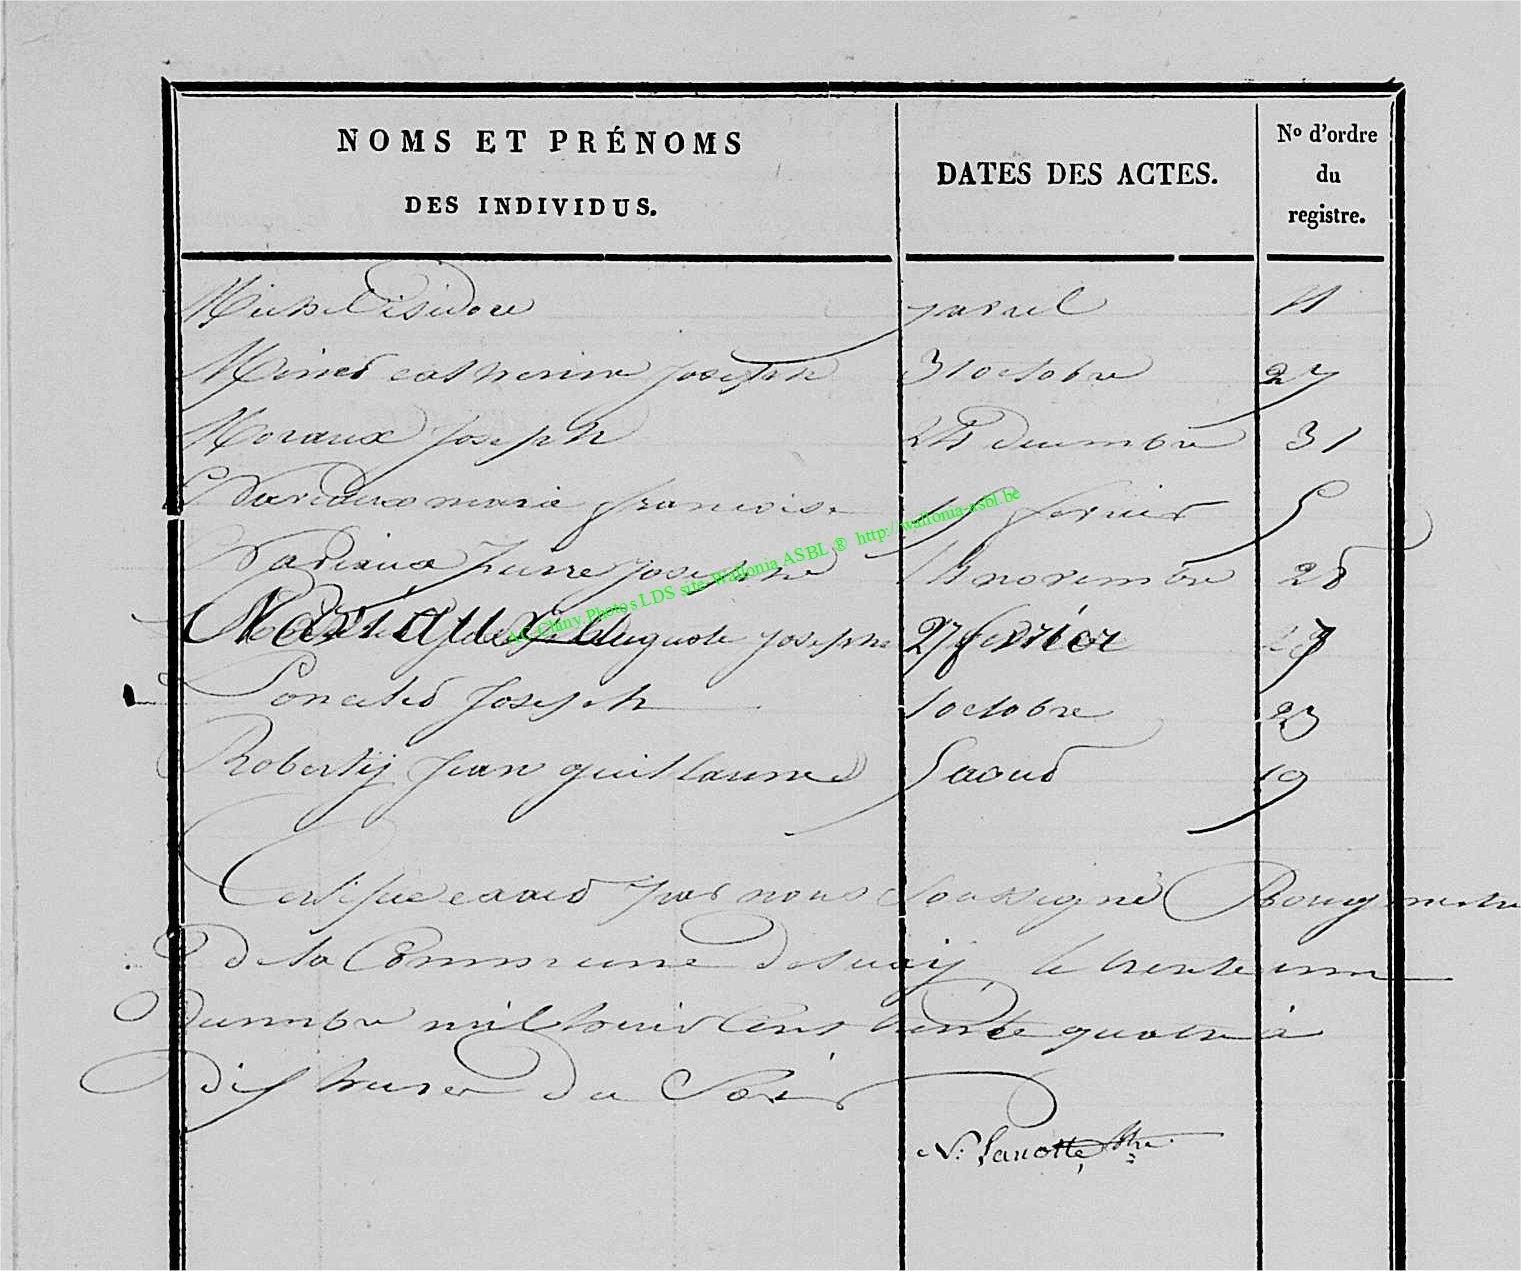 NOMS ET PRÉNOMS
DES INDIVIDUS.
DATES DES ACTES.
No d'ordre
du
registre.
Michel isidore avril 11
catherine joseph 31 octobre 27
Moraux joseph decembre 31
marie francoise fevrier 5
pierre joseph novembre 28
auguste joseph 27 fevrier
Poncelet joseph 1 octobre 23
Roberty jean guillaume 5 aout 19
Certifie exact par nous soussigné Bourgmestre
de la Commune de suxy, le trente un
Decembre mil huit cent trente quatre à
dix heures du Soir
N: Lanotte
AC Chiny Photos LDS site Wallonia ASBL ® http://wallonia-asbl.be